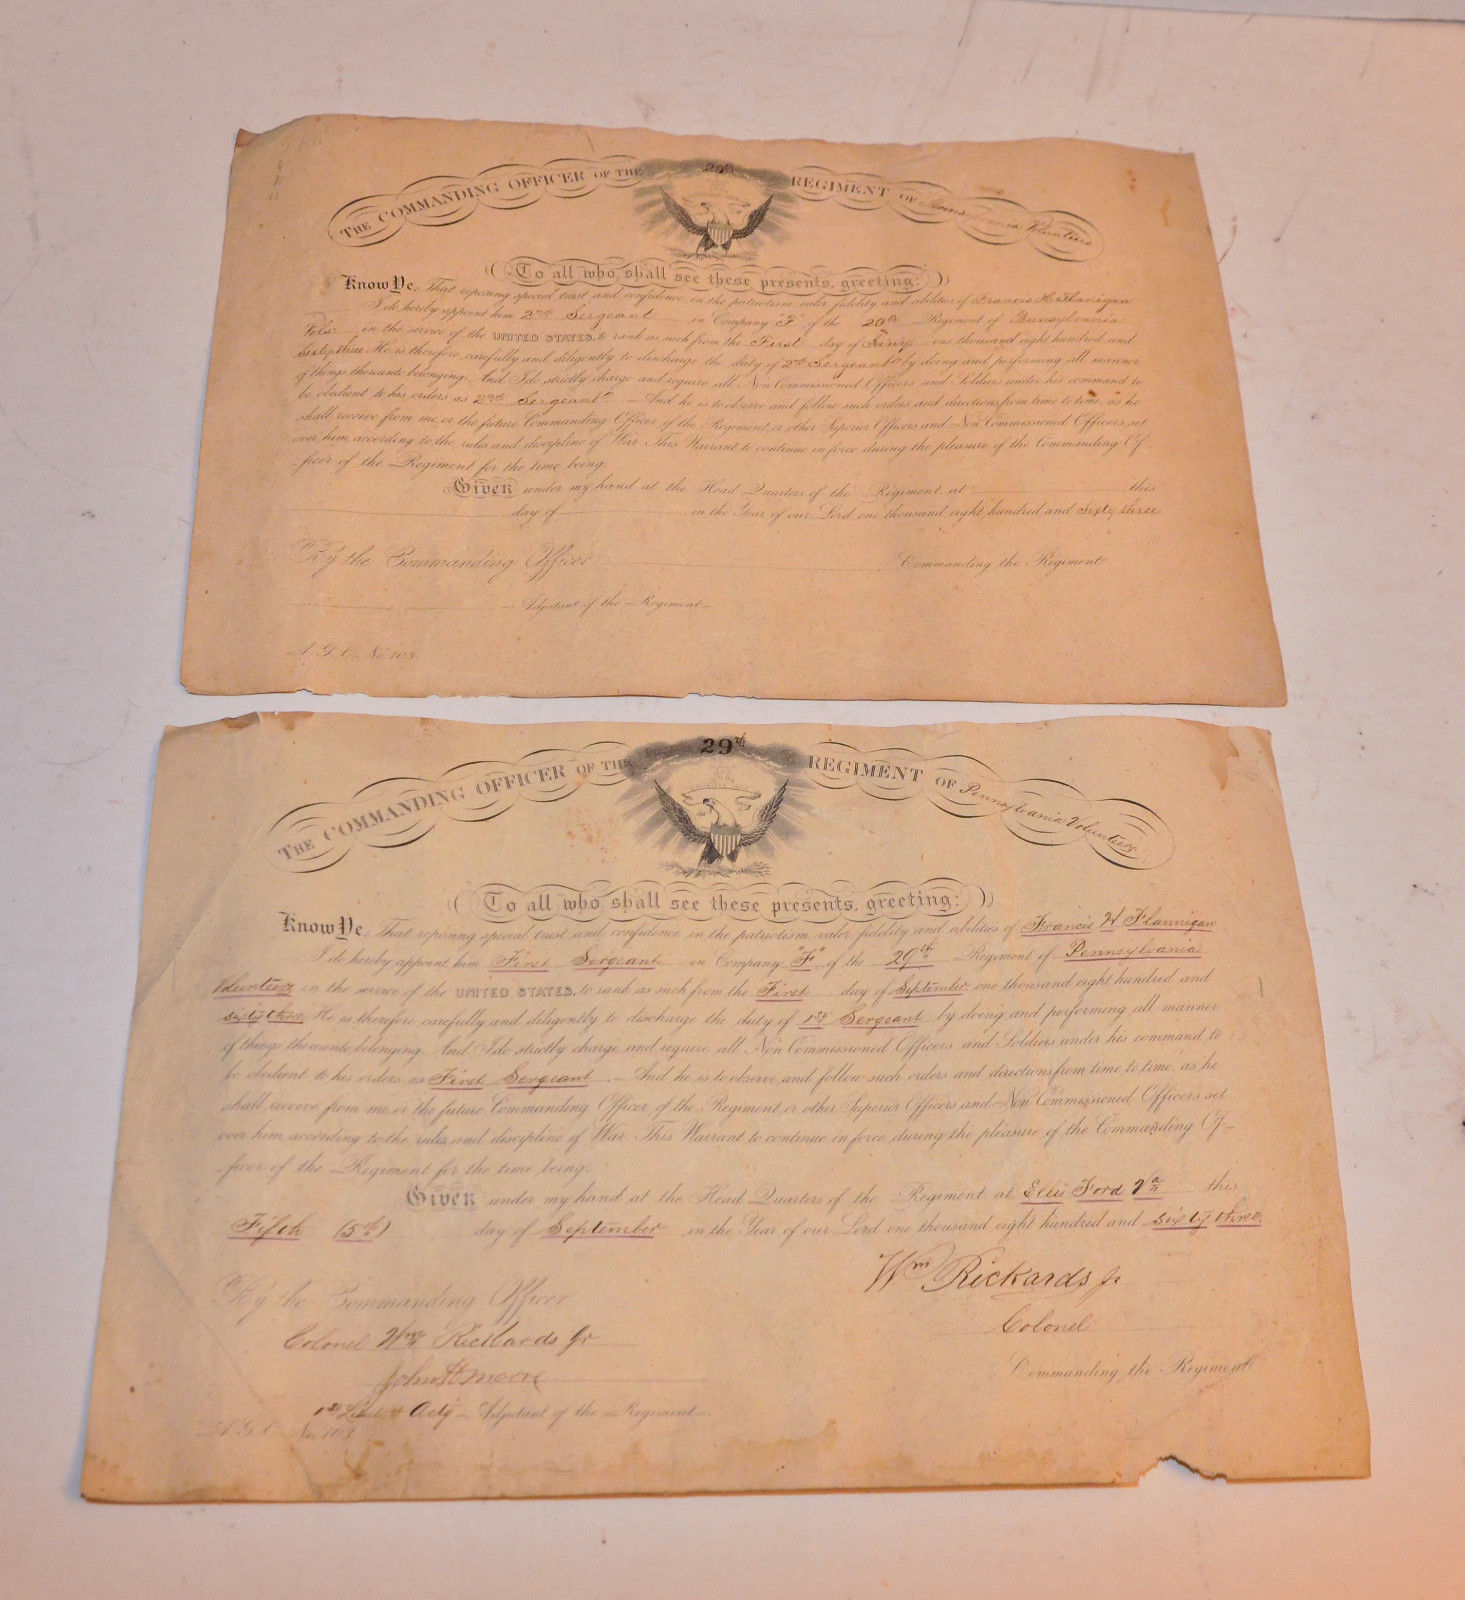 THE COMMANDING OFFICER OF THE 29th REGIMENT OF Pennsylvania Volunteers
To all who shall see these presents, greeting:
Know Ye, That reposing special trust and confidence in the patriotism, valor, fidelity and abilities of Francis H. Flanigan
I do hereby appoint him 2nd Sergeant in Company "F" of the 29th Regiment of Pennsylvania
Vols. in the service of the UNITED STATES, to rank as such from the First day of one thousand eight hundred and
sixty three He is therefore carefully and diligently to discharge the duty of 2nd Sergeant by doing and performing all manner
of things thereunto belonging. And I do strictly charge and require all Non Commissioned Officers and Soldiers under his command to
be obedient to his orders as 2nd Sergeant And he is to observe and follow such orders and directions from time to time, as he
shall receive from me, or the future Commanding Officer of the Regiment, or other Superior Officers and Non Commissioned Officers set
over him, according to the rules and discipline of War. This Warrant to continue in force during the pleasure of the Commanding Of-
ficer of the Regiment for the time being.
Given under my hand at the Head Quarters of the Regiment, at this
day of in the Year of our Lord one thousand eight hundred and sixty three
By the Commanding Officer Commanding the Regiment.
Adjutant of the Regiment.
A. G. O. No. 103.
THE COMMANDING OFFICER OF THE 29th REGIMENT OF Pennsylvania Volunteers
To all who shall see these presents, greeting:
Know Ye, That reposing special trust and confidence in the patriotism, valor, fidelity and abilities of Francis H Flannigan
I do hereby appoint him First Sergeant in Company "F" of the 29th Regiment of Pennsylvania
Volunteers in the service of the UNITED STATES, to rank as such from the First day of September, one thousand eight hundred and
sixty three. He is therefore carefully and diligently to discharge the duty of 1st Sergeant by doing and performing all manner
of things thereunto belonging. And I do strictly charge and require all Non Commissioned Officers and Soldiers under his command to
be obedient to his orders as First Sergeant And he is to observe and follow such orders and directions from time to time, as he
shall receive from me, or the future Commanding Officer of the Regiment, or other Superior Officers and Non Commissioned Officers set
over him, according to the rules and discipline of War. This Warrant to continue in force during the pleasure of the Commanding Of-
ficer of the Regiment for the time being.
Given under my hand at the Head Quarters of the Regiment at Ellis Ford Va this
Fifth (5th) day of September in the Year of our Lord one thousand eight hundred and sixty three.
Wm Rickards Jr
By the Commanding Officer
Colonel
Colonel Wm Rickards Jr
Commanding the Regiment
John H Moore
1st Lieut & Actg Adjutant of the Regiment.
A. G. O. No. 103.